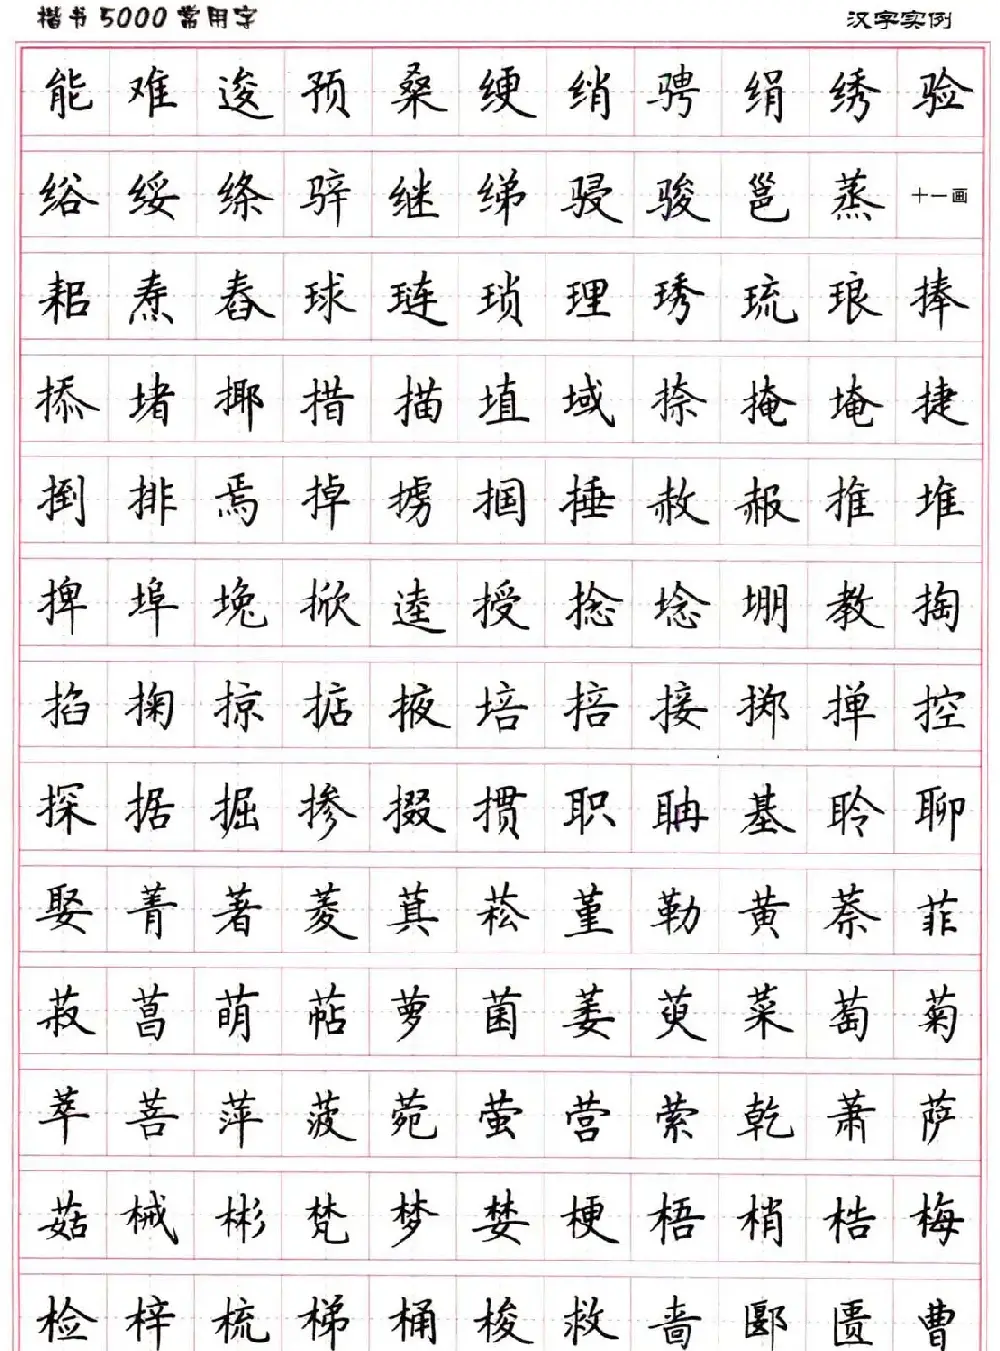 楷书5000常用字 汉字实例
能难逡预桑绠绡骋绢绣验
绤绥绦骍继绨骎骏邕蒸十一画
耜焘舂球琏琐理琇琉琅捧
掭堵揶措描埴域捺掩埯捷
捯排焉掉掳掴捶赦赧推堆
捭埠堍掀逵授捻埝堋教掏
掐掬掠掂掖培掊接掷掸控
探据掘掺掇掼职聃基聆聊
娶菁著菱萁菘堇勒黄萘菲
菽菖萌萜萝菌萎萸菜萄菊
萃菩萍菠菀萤营萦乾萧萨
菇械彬梵梦婪梗梧梢梏梅
检梓梳梯桶梭救啬郾匮曹